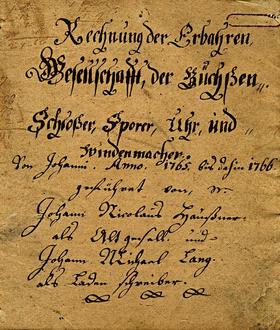 Rechnung der Erbahren
Gesellschafft, der Büchßen,,
Schloßer, Sporer, Uhr, und
Windenmacher,
Von Johanni. Anno. 1765. bis dahin 1766
geführet von,
Johann Nicolaus Häußner.
als Altgesell. und
Johann Michael Lang.
als Laden schreiber.